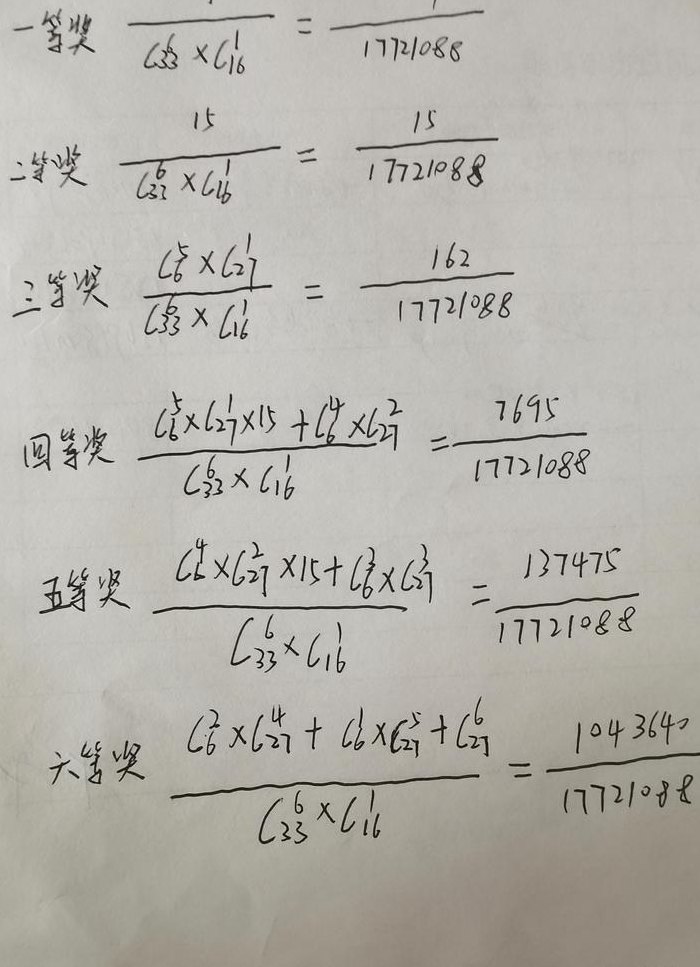 一等奖 / C₃₃⁶ × C₁₆¹ = / 17721088
二等奖 15 / C₃₃⁶ × C₁₆¹ = 15 / 17721088
三等奖 C₆⁵ × C₂₇¹ / C₃₃⁶ × C₁₆¹ = 162 / 17721088
回等奖 C₆⁵ × C₂₇¹ × 15 + C₆⁴ × C₂₇² / C₃₃⁶ × C₁₆¹ = 7695 / 17721088
五等奖 C₆⁴ × C₂₇² × 15 + C₆³ × C₂₇³ / C₃₃⁶ × C₁₆¹ = 137475 / 17721088
六等奖 C₆² × C₂₇⁴ + C₆¹ × C₂₇⁵ + C₂₇⁶ / C₃₃⁶ × C₁₆¹ = 1043640 / 17721088